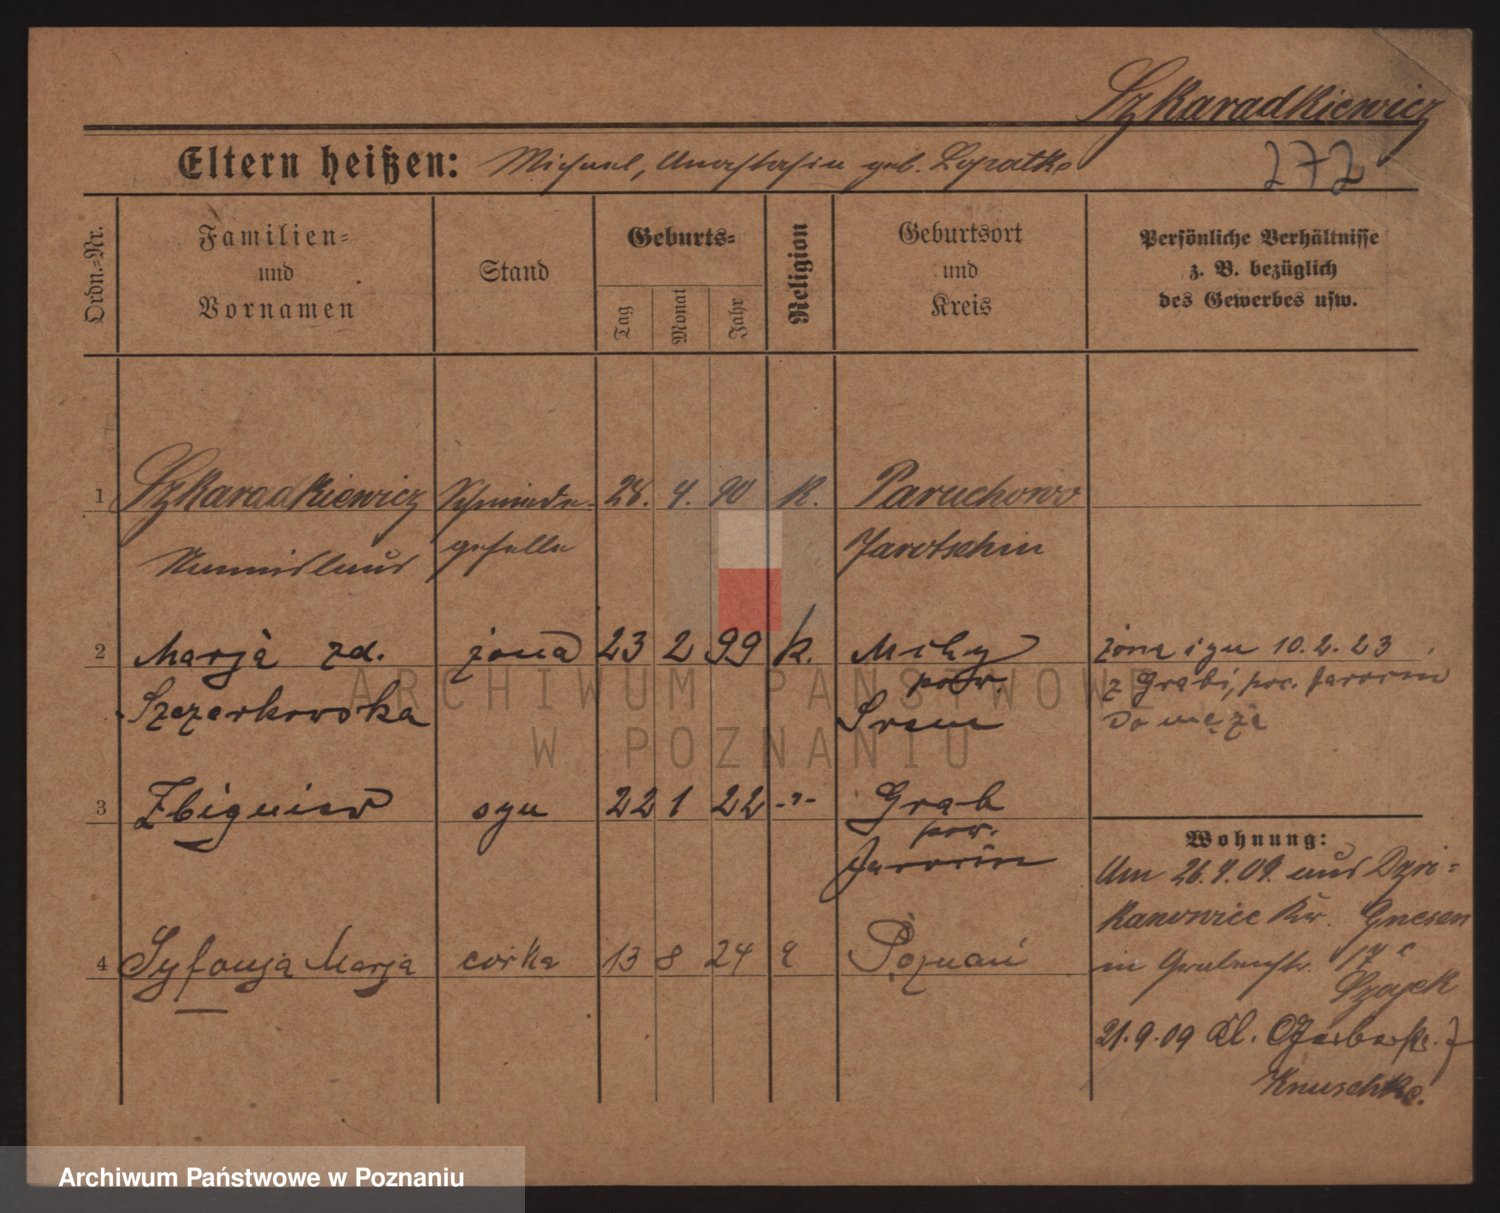 Szkaradkiewicz
Eltern heißen: Michael, Anastasia geb. Lopatka
272
Ordn.-Nr.
Familien-
und
Vornamen
Stand
Geburts-
Tag
Monat
Jahr
Religion
Geburtsort
und
Kreis
Persönliche Verhältnisse
z. B. bezüglich
des Gewerbes usw.
1 Szkaradkiewicz Schmiede- 28. 4. 90 K. Paruchowo
geselle Jarotschin
2 Marja zd. żona 23 2 99 k. Mchy
żona i syn 10.2.23
Szczerkowska pow. Śrem
z Grąbi, pow. Jarocin
do męża
3 Zbigniew syn 22 1 22 -"- Grąb
pow.
Jarocin
4 Syfonja Marja córka 13 8 24 Poznań
Wohnung:
Am 26.4.09. aus Dzie-
kanowice Kr. Gnesen
in 17
21.9.09 Kl.
Knuschke.
ARCHIWUM PAŃSTWOWE
W POZNANIU
Archiwum Państwowe w Poznaniu